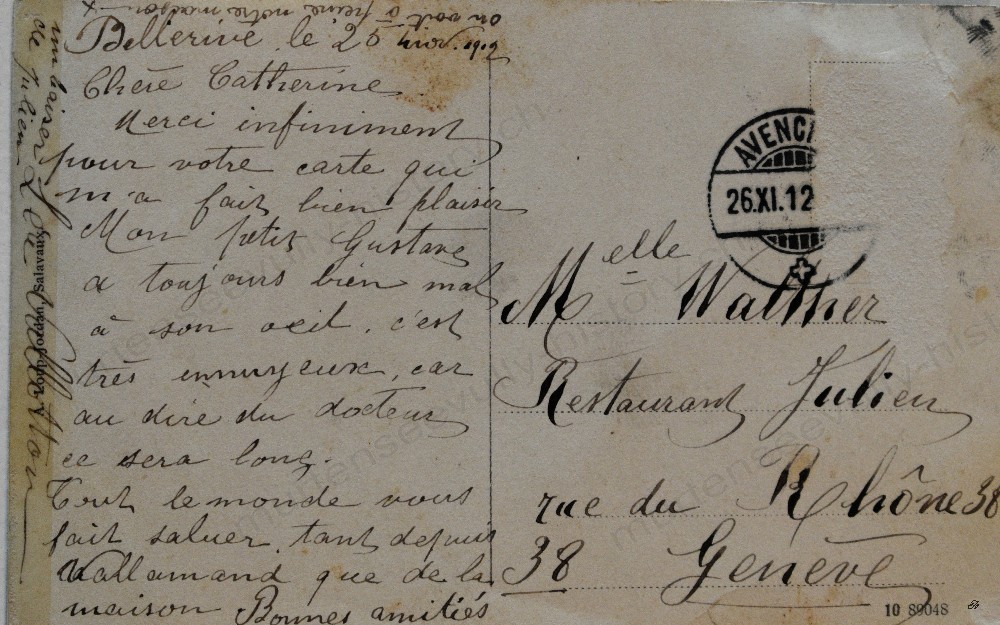 on voit à peine notre maison x
Bellerive, le 25 nov. 1912
Chère Catherine.
Merci infiniment
pour votre carte qui
m'a fait bien plaisir
Mon petit Gustave
a toujours bien mal
à son oeil, c'est
très ennuyeux, car
au dire du docteur
ce sera long.
Tout le monde vous
fait saluer, tant depuis
Vallamand que de la
maison Bonnes amitiés
un baiser
de Julien
Salavaux
AVENCH
26.XI.12
Melle
M Walther
Restaurant Julien
rue du Rhône 38
38 Genève
10 89048